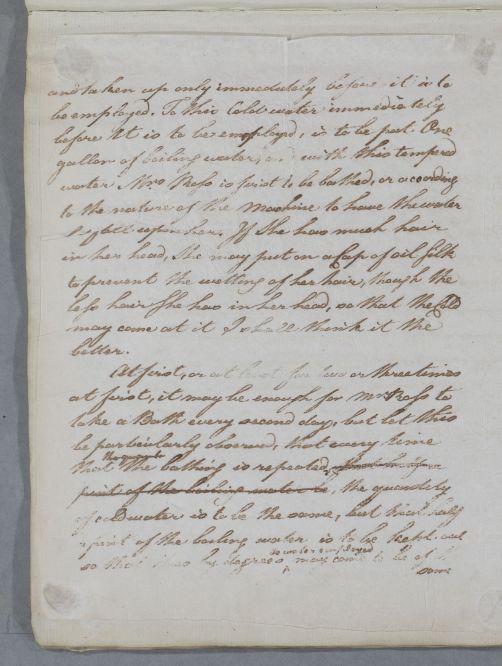 and taken up only immediately before it is to
be employed. To this Cold water immediately
before It is to be employed, is to be put One
gallon of boiling water, and with this tempered
water Mrs Ross is first to be bathed, or according
to the nature of the Machine to have the water
upon her. If She has much hair
in her head, She may put on a Cap of oil Silk
to prevent the wetting of her hair, though the
less hair She has in her head, so that the Cold
may come at it I shall think it the
better.
At first, or at least for two or three times
at first, it may be enough for Mrs Ross to
take a Bath every second day, but let this
be particularly observed, that every time
that the bathing is repeated,
pint of the boiling water be, the quantity
of cold water is to be the same, but that half
a pint of the boiling water is to be kept out
so that thus by degrees the water employed may come to be of
some